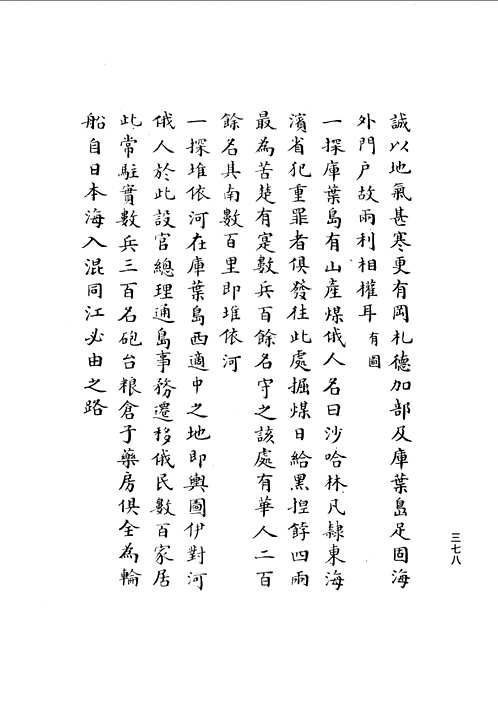 誠以地氣甚寒更有岡札德加部及庫葉島足固海
外門戶故兩利相權耳有圖
一探庫葉島有山產煤俄人名曰沙哈林凡隸東海
濱省犯重罪者俱發往此處掘煤日給黑揑餑四兩
最為苦楚有寔數兵百餘名守之該處有華人二百
餘名其南數百里即堆依河
一探堆依河在庫葉島西適中之地即輿圖伊對河
俄人於此設官總理通島事務遷移俄民數百家居
此常駐實數兵三百名砲台粮倉子藥房俱全為輪
船自日本海入混同江必由之路
三七八